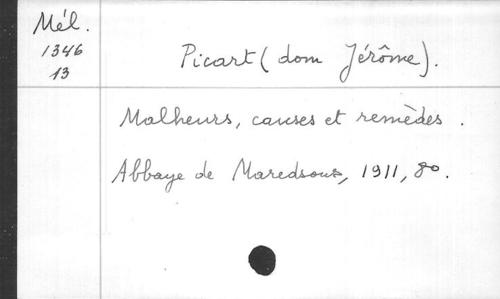 Mél.
1346
13
Picart (dom Jérôme).
Malheurs, causes et remèdes.
Abbaye de Maredsous, 1911, 8o.